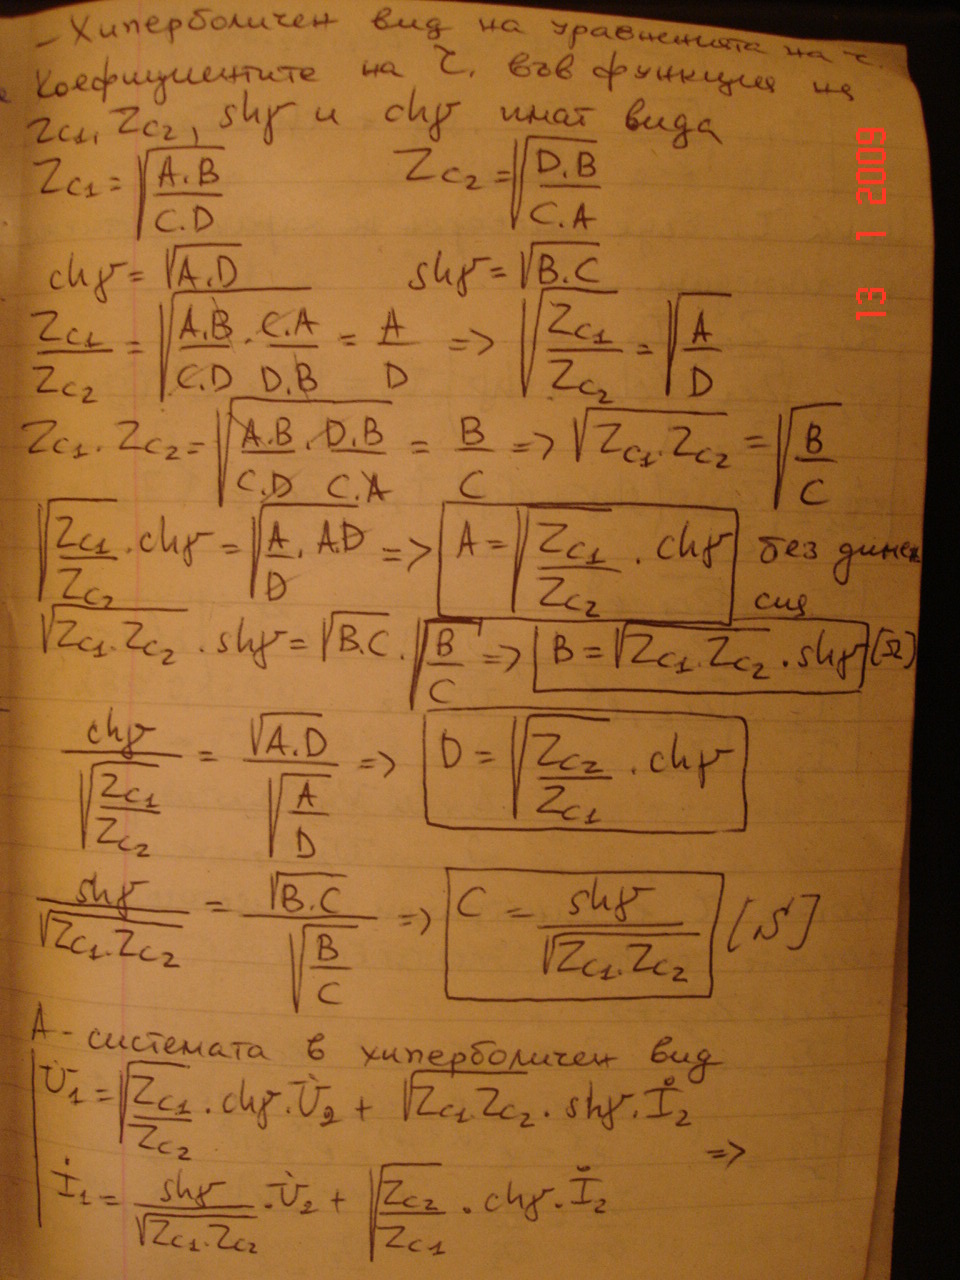 - Хиперболичен вид на уравненията на Ч.
Коефициентите на Ч. във функция на
Zc1, Zc2, shγ и chγ имат вида
Zc1 = √(A.B / C.D) Zc2 = √(D.B / C.A)
chγ = √A.D shγ = √B.C
Zc1 / Zc2 = √(A.B / C.D . C.A / D.B) = A / D => √(Zc1 / Zc2) = √(A / D)
Zc1 . Zc2 = √(A.B / C.D . D.B / C.A) = B / C => √Zc1.Zc2 = √(B / C)
√(Zc1 / Zc2) . chγ = √(A / D . AD) => A = √(Zc1 / Zc2) . chγ без димен
сия
√Zc1.Zc2 . shγ = √B.C . √(B / C) => B = √Zc1.Zc2 . shγ [Ω]
chγ / √(Zc1 / Zc2) = √A.D / √(A / D) => D = √(Zc2 / Zc1) . chγ
shγ / √Zc1.Zc2 = √B.C / √(B / C) => C = shγ / √Zc1.Zc2 [S]
A - системата в хиперболичен вид
U̇1 = √(Zc1 / Zc2) . chγ . U̇2 + √Zc1.Zc2 . shγ . İ2
=>
İ1 = shγ / √Zc1.Zc2 . U̇2 + √(Zc2 / Zc1) . chγ . İ2
13 1 2009